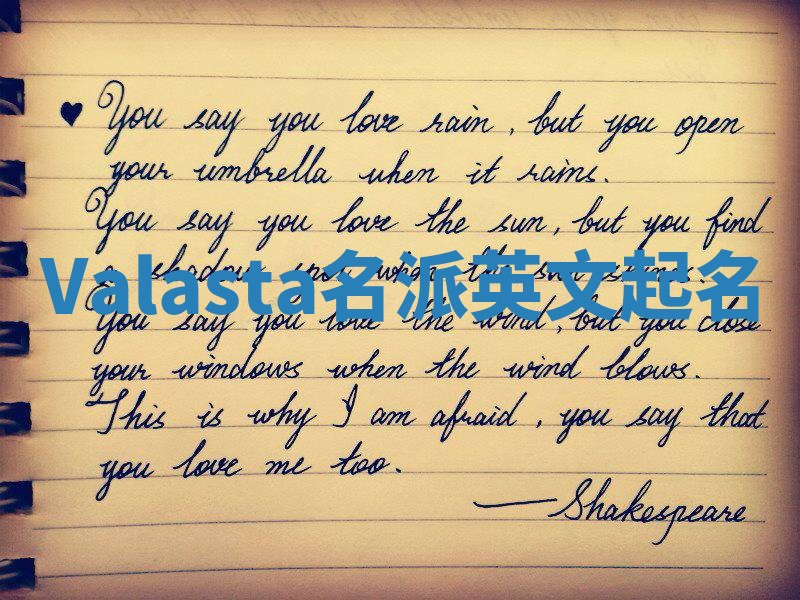 ♥ You say you love rain, but you open
your umbrella when it rains.
You say you love the sun, but you find
a shadow spot when the sun shines.
Valasta名派英文起名
You say you love the wind, but you close
your windows when the wind blows.
This is why I am afraid, you say that
you love me too.
—Shakespeare